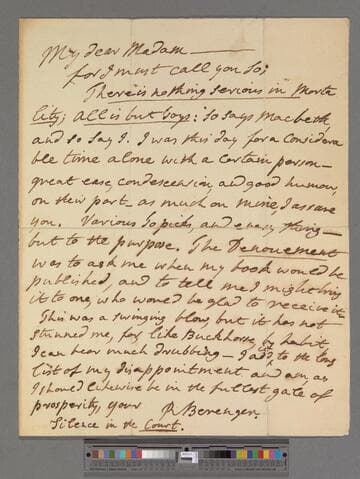 My dear Madam —
for I must call you so;
There is nothing serious in Morta
lity; all is but toys: so says Macbeth,
and so say I. I was this day for a Considera
ble time alone with a Certain person —
great ease, condescension, and good humour,
on their part — as much on mine, I assure
you. Various Topicks, and every thing —
but to the purpose. The Denouement
was to ask me when my book would be
published, and to tell me I might bring
it to one, who would be glad to receive it.
This was a swinging blow, but it has not
stunned me, for like Buckhorse, by habit,
I can bear much drubbing — I add it to the long
list of my disappointment and am, as
I should likewise be in the fullest gale of
prosperity, your R. Berenger.
Silence in the Court.